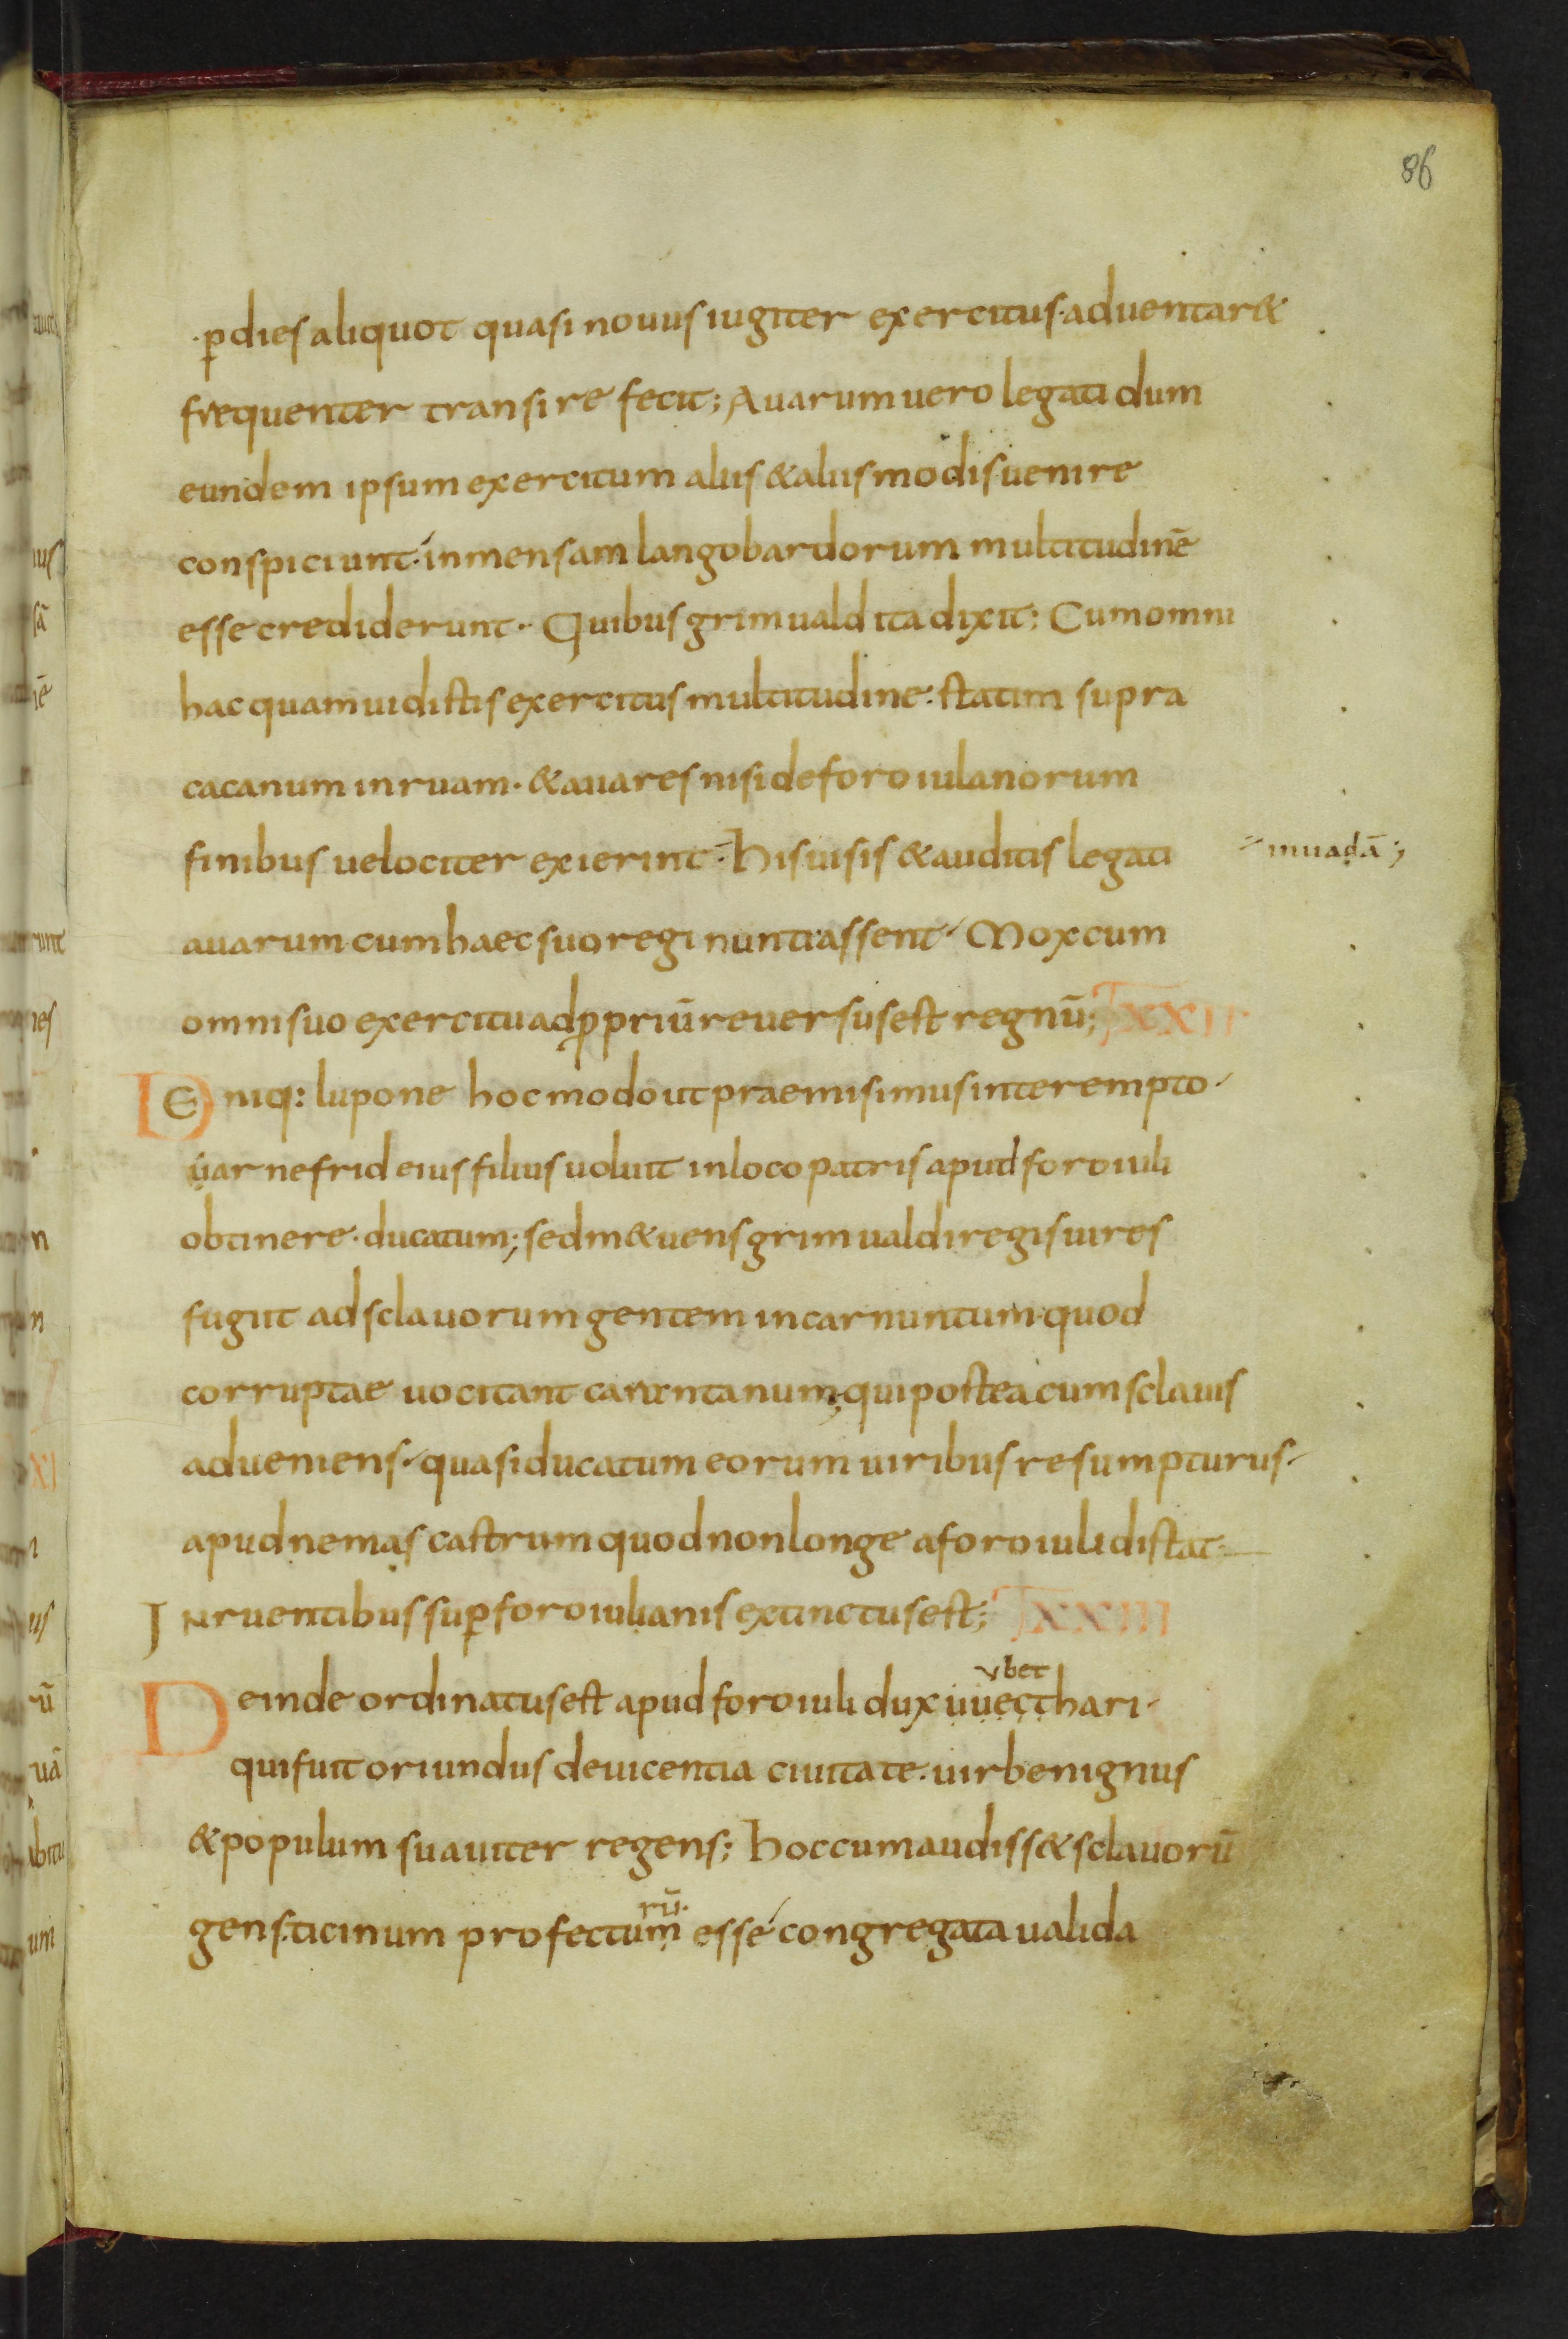 86
·p̲dies aliquot quasi nouus iugiter exercitus·aduentar&
frequenter transire fecit; Auarum uero legati dum
eundem ipsum exercitum aliis & aliis modis uenire
conspiciunt· inmensam langobardorum multitudinē
esse crediderunt·· Quibus grimuald ita dixit; Cum omni
hac quam uidistis exercitus multitudine· statim supra
cacanum inruam· & auares nisi de foroiulanorum
finibus uelociter exierint· His uisis & auditis legati
inuadā;
auarum cum haec suo regi nuntiassent· Mox cum
omni suo exercitu ad p̲priū reuersus est regnū; XXII
DEniq: lupone hoc modo ut praemisimus interempto·
uarnefrid eius filius uoluit in loco patris apud foroiuli
obtinere·ducatum; sed m&uens grimualdi regis uires
fugiit ad sclauorum gentem in carnuntum·quod
corruptae uocitant carantanum; qui postea cum sclauis
adueniens· quasi ducatum eorum uiribus resumpturus·
apud nemas castrum quod non longe a foroiuli distat·
Inruentibus sup̲ foroiulianis extinctus est; XXIII
ubet
Deinde ordinatus est apud foroiuli dux uuecthari·
qui fuit oriundus de uicentia ciuitate·uir benignus
& populum suauiter regens; Hoc cum audiss& sclauorū
rū·
gens·ticinum profectum esse congregata ualida